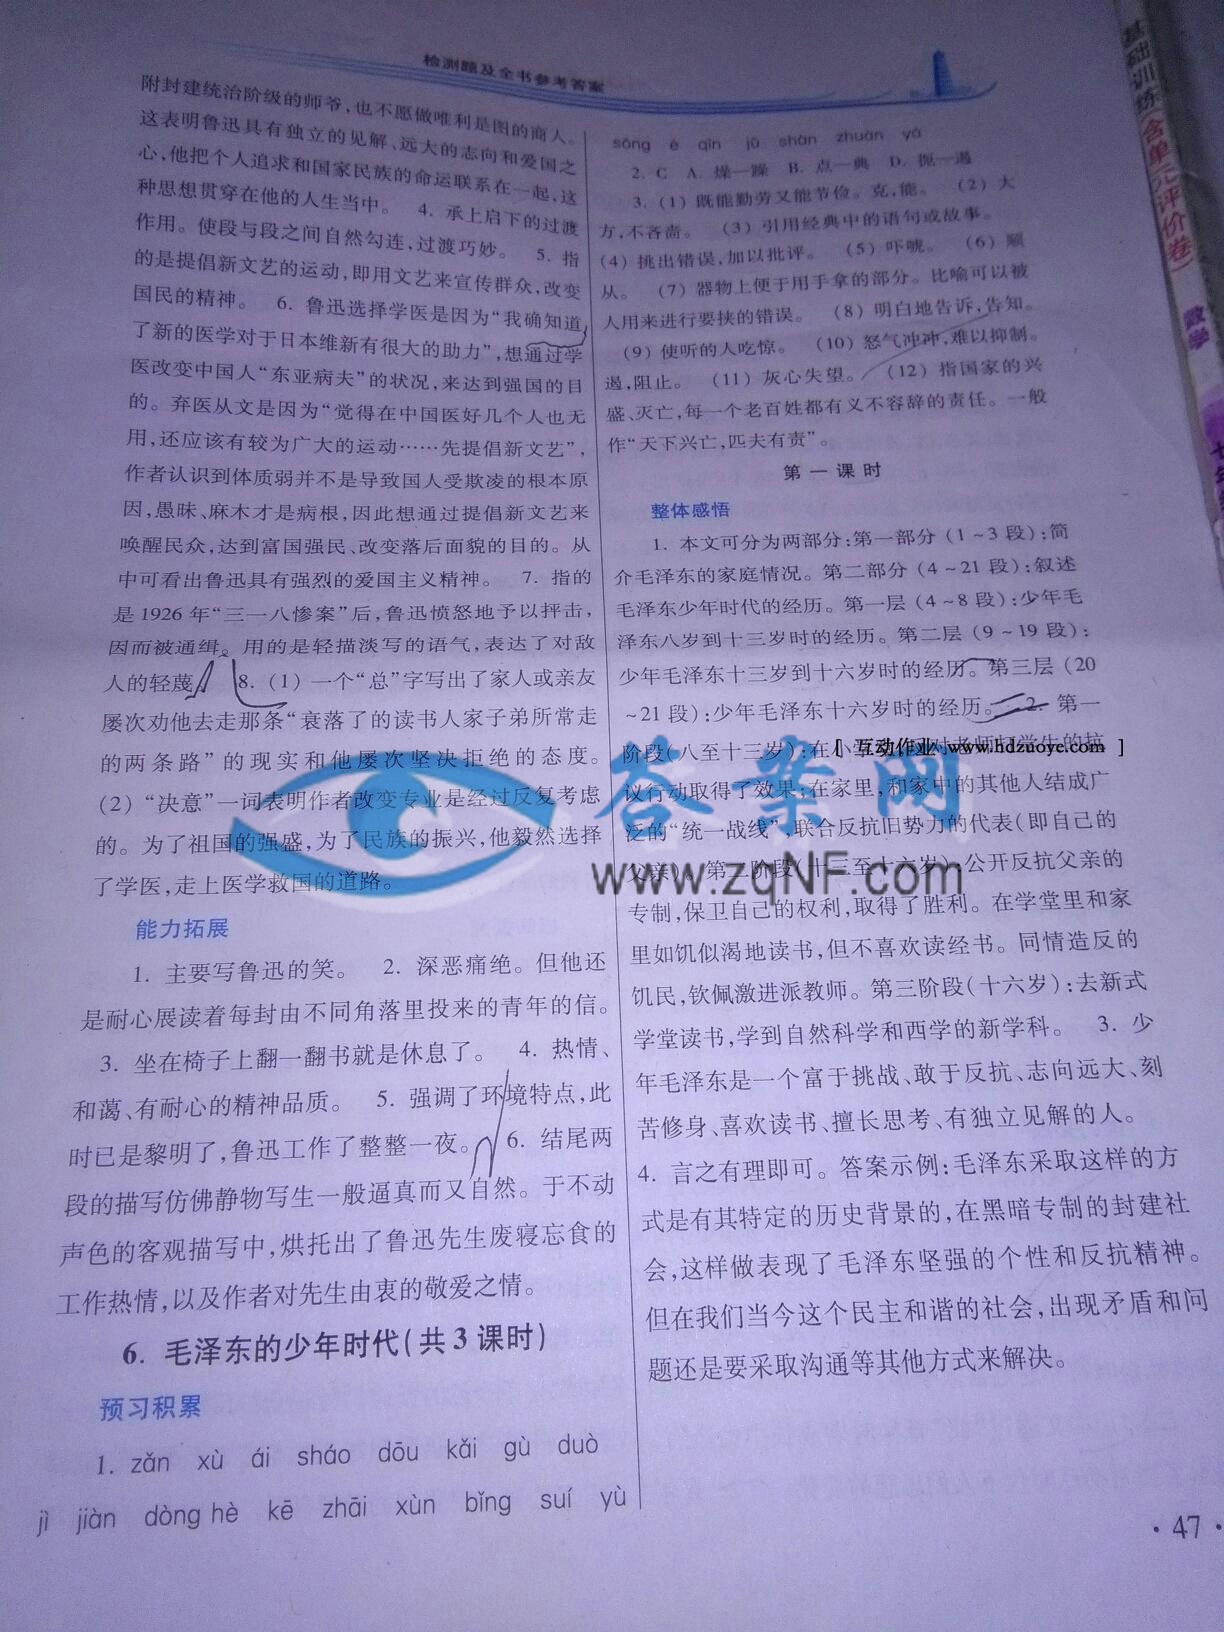 检测题及全书参考答案
附封建统治阶级的师爷,也不愿做唯利是图的商人。
这表明鲁迅具有独立的见解、远大的志向和爱国之
心,他把个人追求和国家民族的命运联系在一起,这
种思想贯穿在他的人生当中。 4. 承上启下的过渡
作用。使段与段之间自然勾连,过渡巧妙。 5. 指
的是提倡新文艺的运动,即用文艺来宣传群众,改变
国民的精神。 6. 鲁迅选择学医是因为“我确知道
了新的医学对于日本维新有很大的助力”,想通过学
医改变中国人“东亚病夫”的状况,来达到强国的目
的。弃医从文是因为“觉得在中国医好几个人也无
用,还应该有较为广大的运动……先提倡新文艺”,
作者认识到体质弱并不是导致国人受欺凌的根本原
因,愚昧、麻木才是病根,因此想通过提倡新文艺来
唤醒民众,达到富国强民、改变落后面貌的目的。从
中可看出鲁迅具有强烈的爱国主义精神。 7. 指的
是 1926 年“三一八惨案”后,鲁迅愤怒地予以抨击,
因而被通缉。用的是轻描淡写的语气,表达了对敌
人的轻蔑 8. (1) 一个“总”字写出了家人或亲友
屡次劝他去走那条“衰落了的读书人家子弟所常走
的两条路”的现实和他屡次坚决拒绝的态度。
(2) “决意”一词表明作者改变专业是经过反复考虑
的。为了祖国的强盛,为了民族的振兴,他毅然选择
了学医,走上医学救国的道路。
能力拓展
1. 主要写鲁迅的笑。 2. 深恶痛绝。但他还
是耐心展读着每封由不同角落里投来的青年的信。
3. 坐在椅子上翻一翻书就是休息了。 4. 热情、
和蔼、有耐心的精神品质。 5. 强调了环境特点,此
时已是黎明了,鲁迅工作了整整一夜。 6. 结尾两
段的描写仿佛静物写生一般逼真而又自然。于不动
声色的客观描写中,烘托出了鲁迅先生废寝忘食的
工作热情,以及作者对先生由衷的敬爱之情。
6. 毛泽东的少年时代(共 3 课时)
预习积累
1. zǎn xù ái sháo dōu kǎi gù duò
jì jiàn dòng hè kē zhāi xùn bǐng suí yù
sǒng è qìn jǔ shàn zhuàn yá
2. C A. 燥—躁 B. 点—典 D. 扼—遏
3. (1) 既能勤劳又能节俭。克,能。 (2) 大
方,不吝啬。 (3) 引用经典中的语句或故事。
(4) 挑出错误,加以批评。 (5) 吓唬。 (6) 顺
从。 (7) 器物上便于用手拿的部分。比喻可以被
人用来进行要挟的错误。 (8) 明白地告诉,告知。
(9) 使听的人吃惊。 (10) 怒气冲冲,难以抑制。
遏,阻止。 (11) 灰心失望。 (12) 指国家的兴
盛、灭亡,每一个老百姓都有义不容辞的责任。一般
作“天下兴亡,匹夫有责”。
第一课时
整体感悟
1. 本文可分为两部分:第一部分 (1～3 段):简
介毛泽东的家庭情况。第二部分 (4～21 段):叙述
毛泽东少年时代的经历。第一层 (4～8 段):少年毛
泽东八岁到十三岁时的经历。第二层 (9～19 段):
少年毛泽东十三岁到十六岁时的经历。第三层 (20
～21 段):少年毛泽东十六岁时的经历。 2. 第一
阶段(八至十三岁):在小学 对老师打学生的抗
[ 互动作业 www.hdzuoye.com ]
议行动取得了效果;在家里,和家中的其他人结成广
泛的“统一战线”,联合反抗旧势力的代表(即自己的
父亲)。第二阶段(十三至十六岁):公开反抗父亲的
专制,保卫自己的权利,取得了胜利。在学堂里和家
里如饥似渴地读书,但不喜欢读经书。同情造反的
饥民,钦佩激进派教师。第三阶段(十六岁):去新式
学堂读书,学到自然科学和西学的新学科。 3. 少
年毛泽东是一个富于挑战、敢于反抗、志向远大、刻
苦修身、喜欢读书、擅长思考、有独立见解的人。
4. 言之有理即可。答案示例:毛泽东采取这样的方
式是有其特定的历史背景的,在黑暗专制的封建社
会,这样做表现了毛泽东坚强的个性和反抗精神。
但在我们当今这个民主和谐的社会,出现矛盾和问
题还是要采取沟通等其他方式来解决。
答案网
www.zqNF.com
· 47 ·
基础训练(含单元评价卷) 数学